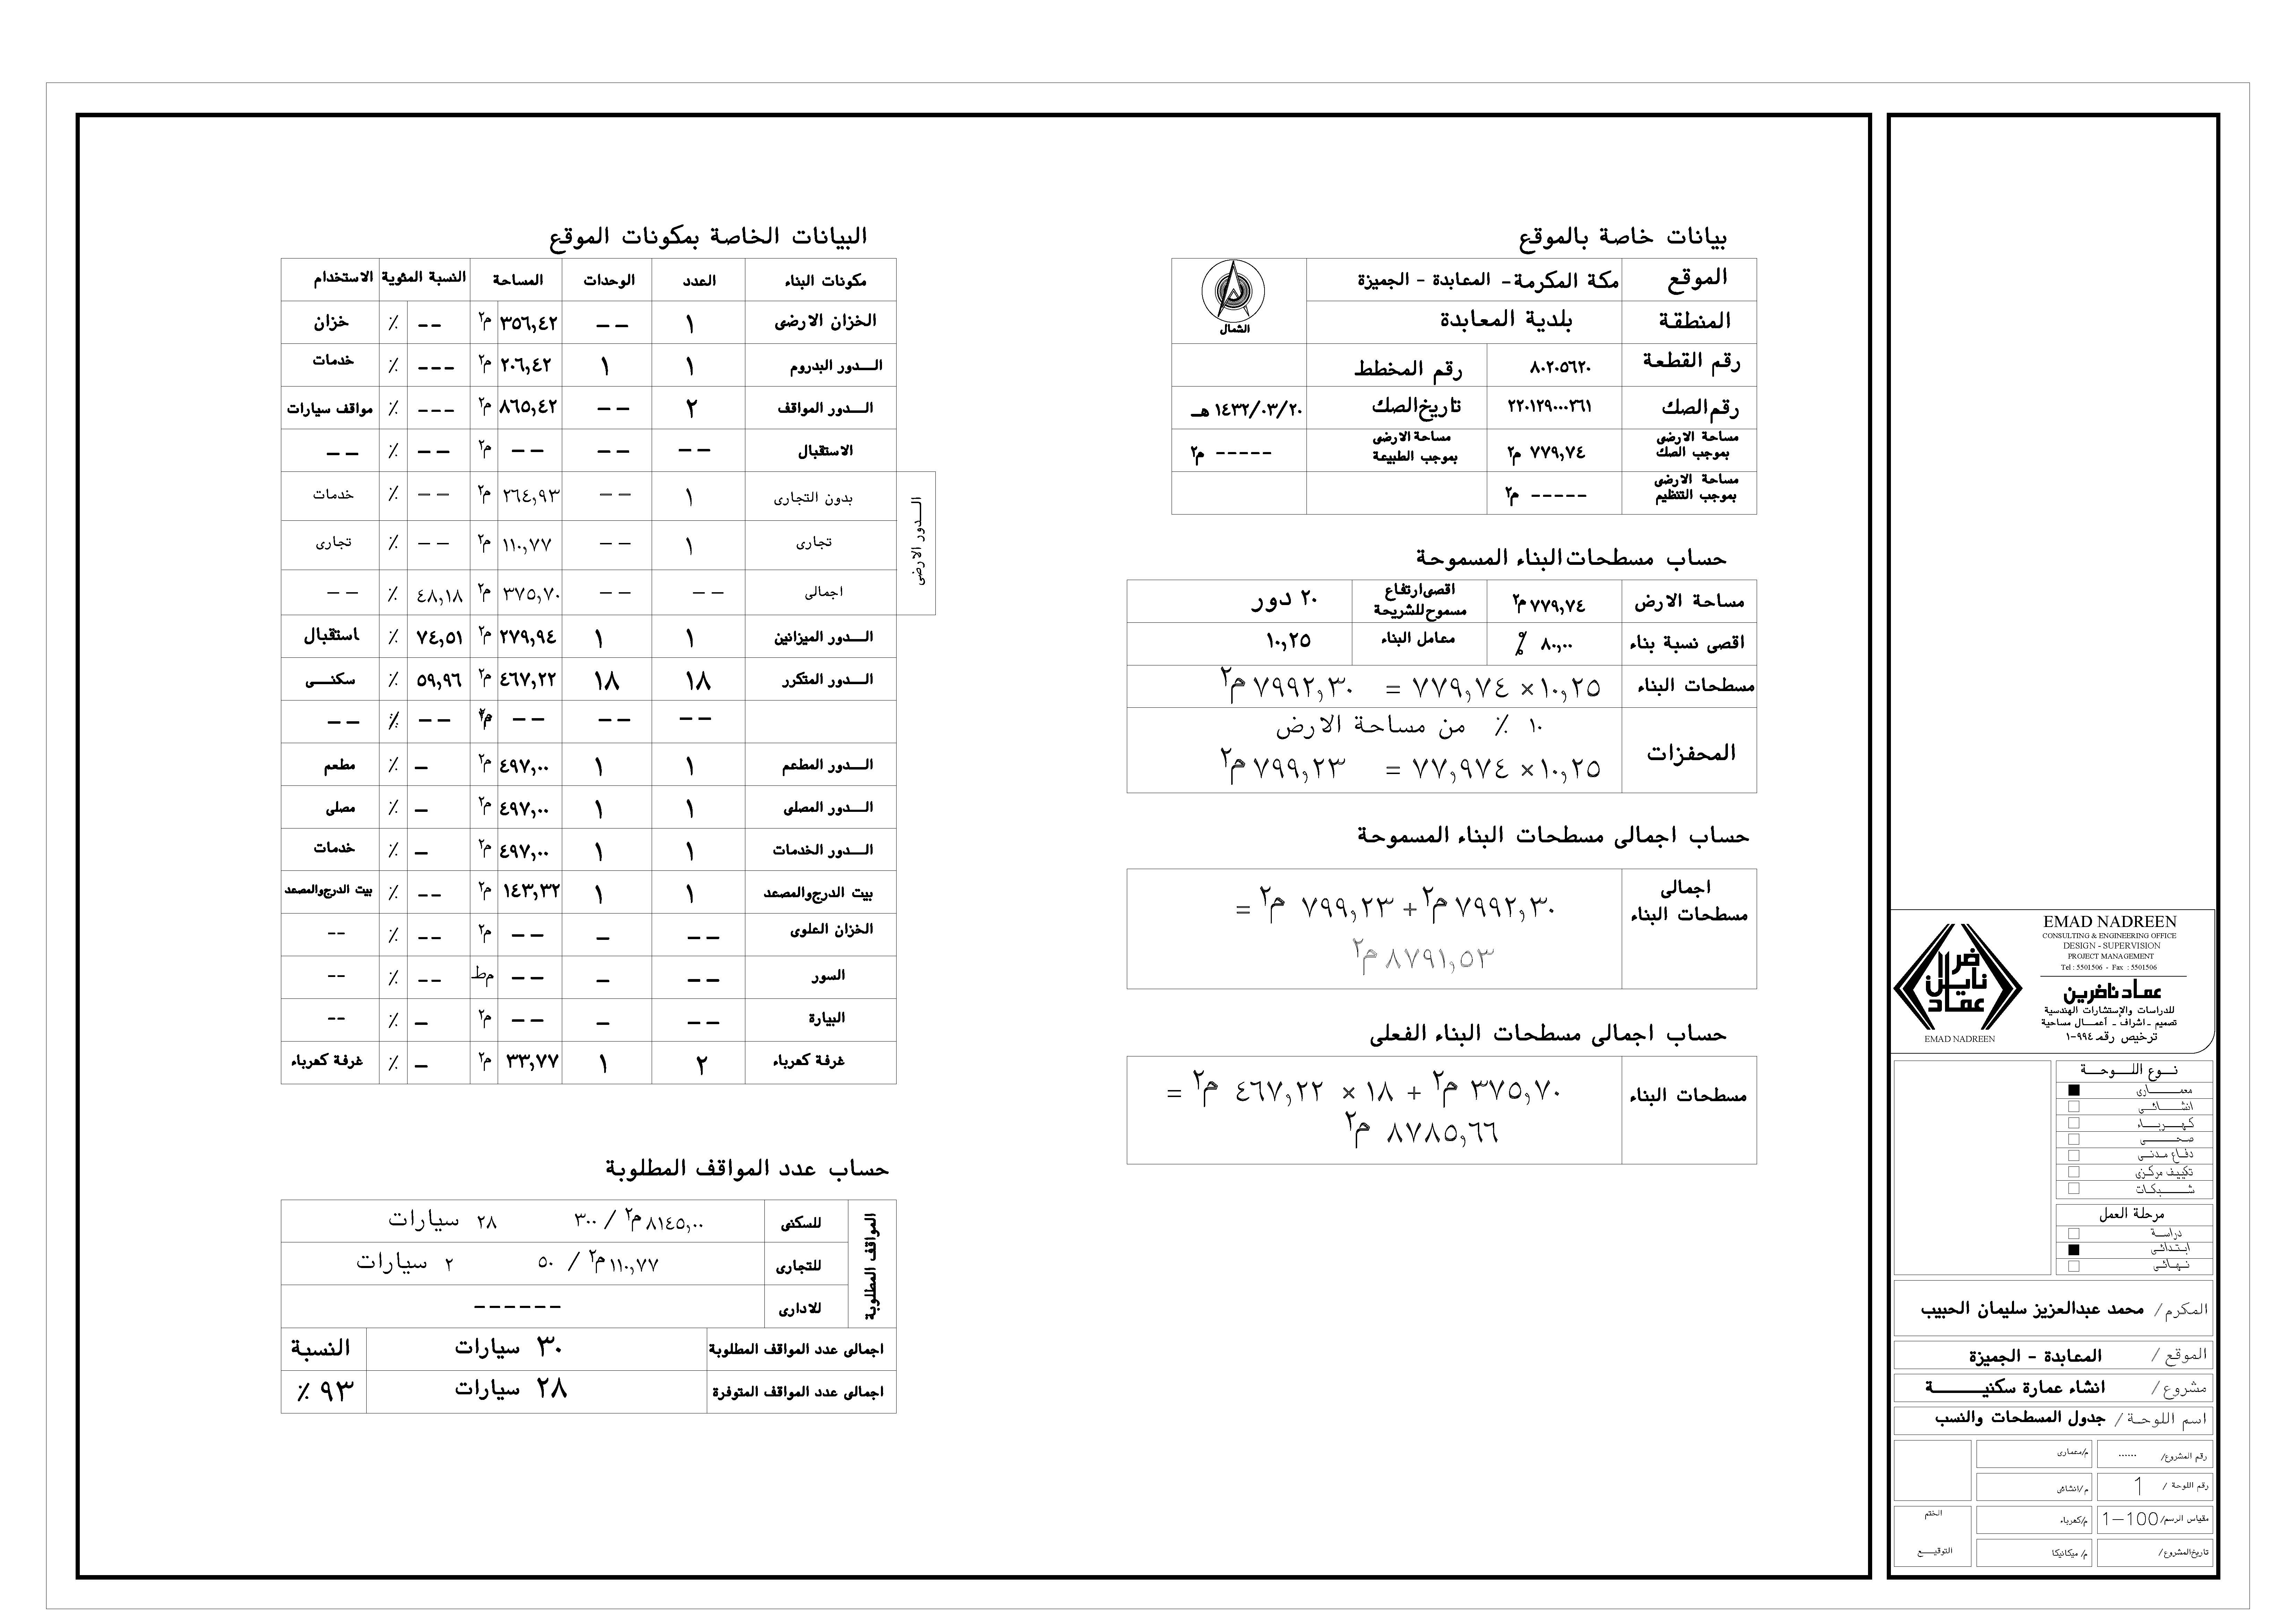 بيانات خاصة بالموقع
الموقع مكة المكرمة - المعابدة - الجميزة
الشمال
المنطقة بلدية المعابدة
رقم القطعة ٨٠٢٠٥٦٢٠ رقم المخطط
رقم الصك ٢٢٠١٢٩٠٠٠٣٦١ تاريخ الصك ١٤٣٢/٠٣/٢٠ هـ
مساحة الارض بموجب الصك ٧٧٩,٧٤ م٢ مساحة الارض بموجب الطبيعة ----- م٢
مساحة الارض بموجب التنظيم ----- م٢
حساب مسطحات البناء المسموحة
مساحة الارض ٧٧٩,٧٤ م٢ اقصى ارتفاع مسموح للشريحة ٢٠ دور
اقصى نسبة بناء ٨٠,٠٠ % معامل البناء ١٠,٢٥
مسطحات البناء ١٠,٢٥ × ٧٧٩,٧٤ = ٧٩٩٢,٣٠ م٢
المحفزات ١٠ ٪ من مساحة الارض
١٠,٢٥ × ٧٧,٩٧٤ = ٧٩٩,٢٣ م٢
حساب اجمالى مسطحات البناء المسموحة
اجمالى مسطحات البناء ٧٩٩٢,٣٠ م٢ + ٧٩٩,٢٣ م٢ =
٨٧٩١,٥٣ م٢
حساب اجمالى مسطحات البناء الفعلى
مسطحات البناء ٣٧٥,٧٠ م٢ + ١٨ × ٤٦٧,٢٢ م٢ =
٨٧٨٥,٦٦ م٢
البيانات الخاصة بمكونات الموقع
مكونات البناء العدد الوحدات المساحة النسبة المئوية الاستخدام
الخزان الارضى ١ -- ٣٥٦,٤٢ م٢ -- ٪ خزان
الـــدور البدروم ١ ١ ٢٠٦,٤٢ م٢ --- ٪ خدمات
الـــدور المواقف ٢ -- ٨٦٥,٤٢ م٢ --- ٪ مواقف سيارات
الاستقبال -- -- -- م٢ -- ٪ --
الـــدور الارضى
بدون التجارى ١ -- ٢٦٤,٩٣ م٢ -- ٪ خدمات
تجارى ١ -- ١١٠,٧٧ م٢ -- ٪ تجارى
اجمالى -- -- ٣٧٥,٧٠ م٢ ٤٨,١٨ ٪ --
الـــدور الميزانين ١ ١ ٢٧٩,٩٤ م٢ ٧٤,٥١ ٪ استقبال
الـــدور المتكرر ١٨ ١٨ ٤٦٧,٢٢ م٢ ٥٩,٩٦ ٪ سكنـــى
-- -- -- م٢ -- ٪ --
الـــدور المطعم ١ ١ ٤٩٧,٠٠ م٢ - ٪ مطعم
الـــدور المصلى ١ ١ ٤٩٧,٠٠ م٢ - ٪ مصلى
الـــدور الخدمات ١ ١ ٤٩٧,٠٠ م٢ - ٪ خدمات
بيت الدرج والمصعد ١ ١ ١٤٣,٣٢ م٢ -- ٪ بيت الدرج والمصعد
الخزان العلوى -- - -- م٢ -- ٪ --
السور -- - -- م ط -- ٪ --
البيارة -- - -- م٢ - ٪ --
غرفة كهرباء ٢ ١ ٣٣,٧٧ م٢ - ٪ غرفة كهرباء
حساب عدد المواقف المطلوبة
المواقف المطلوبة
للسكنى ٨١٤٥,٠٠ م٢ / ٣٠٠ ٢٨ سيارات
للتجارى ١١٠,٧٧ م٢ / ٥٠ ٢ سيارات
للادارى ------
اجمالى عدد المواقف المطلوبة ٣٠ سيارات النسبة
اجمالى عدد المواقف المتوفرة ٢٨ سيارات ٩٣ ٪
EMAD NADREEN
CONSULTING & ENGINEERING OFFICE
DESIGN - SUPERVISION
PROJECT MANAGEMENT
Tel : 5501506 - Fax : 5501506
عماد ناضرين
للدراسات والإستشارات الهندسية
تصميم - اشراف - أعمـــال مساحية
ترخيص رقم ٩٩٤-١
EMAD NADREEN
نــوع اللــوحــة
معمـــــارى
انشـــــائـــى
كـهـــربـــاء
صحـــــى
دفـاع مـدنـــى
تكييـف مركـزى
شـــــبكـات
مرحلة العمل
دراسـة
ابـتـدائـى
نـهـائـى
المكرم / محمد عبدالعزيز سليمان الحبيب
الموقع / المعابدة - الجميزة
مشروع / انشاء عمارة سكنيـــــة
اسم اللوحـة / جدول المسطحات والنسب
رقم المشروع/ ...... م/معمارى
رقم اللوحة / 1 م/انشائى
مقياس الرسم/ 1-100 م/كهرباء الختم
تاريخ المشروع/ م/ ميكانيكا التوقيـــع